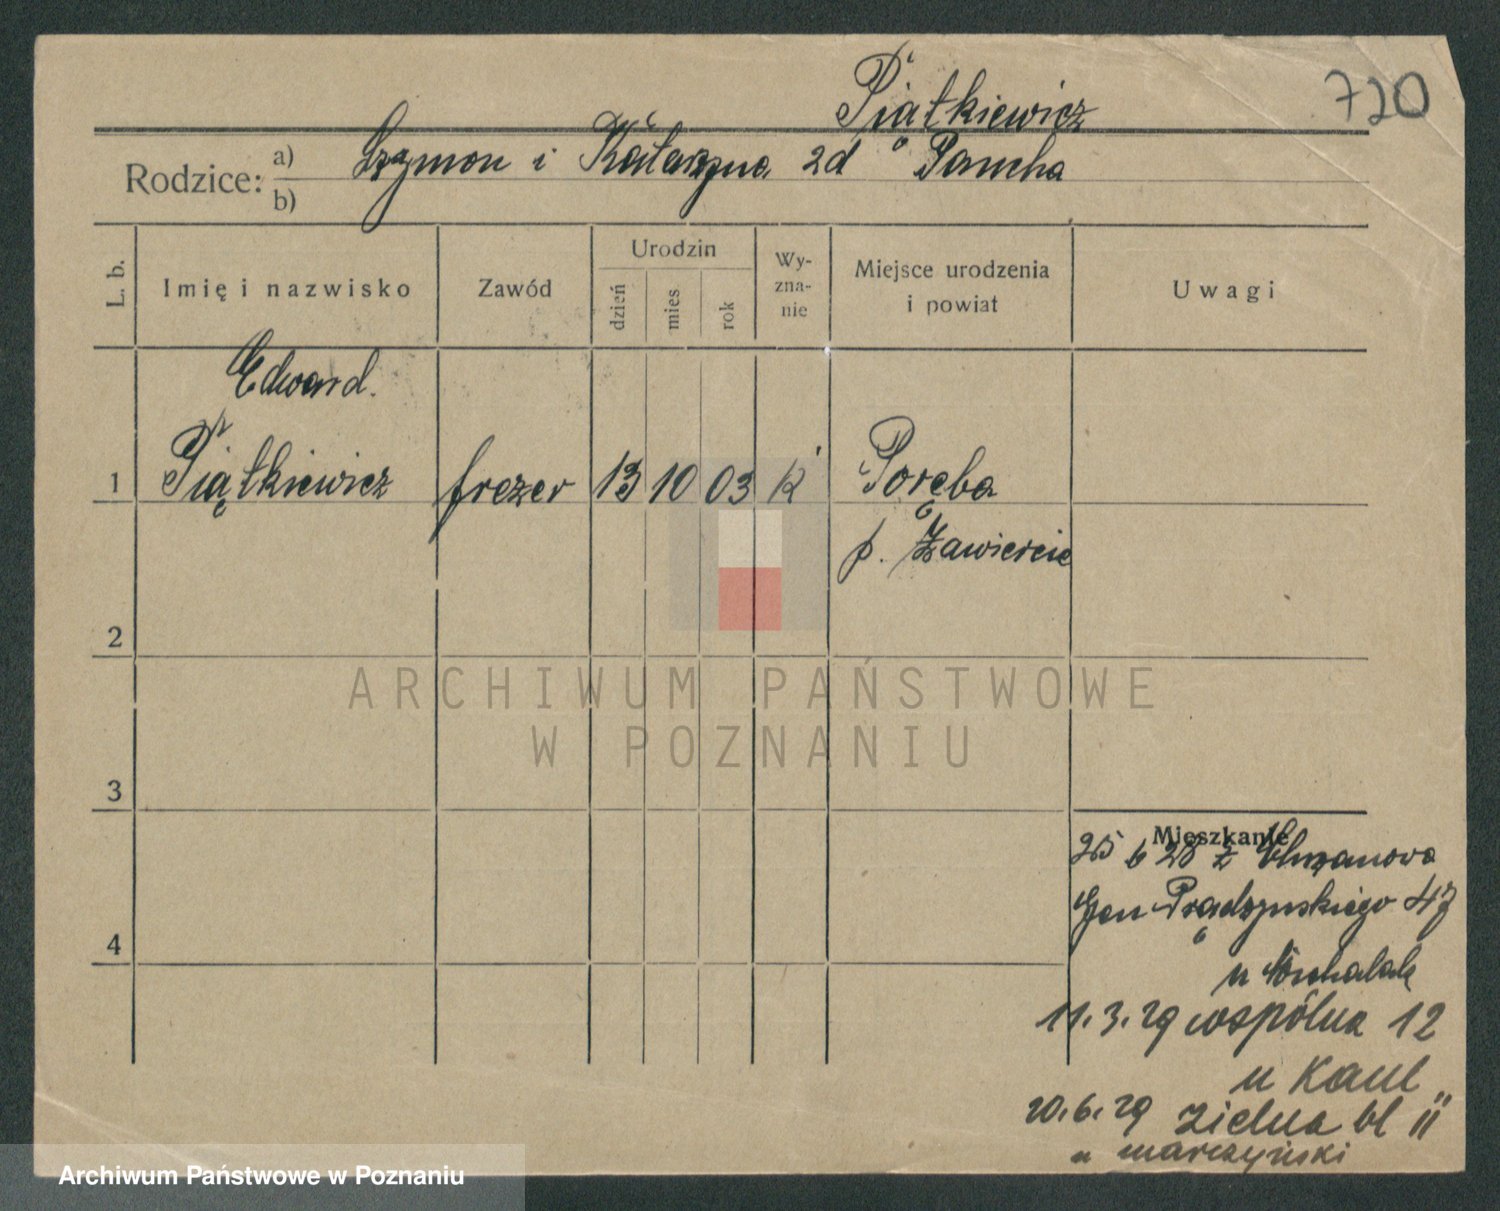 Piątkiewicz
720
Rodzice: a) Szymon i Katarzyna zd
b)
L. b.
Imię i nazwisko
Zawód
Urodzin
dzień
mies
rok
Wy-
zna-
nie
Miejsce urodzenia
i powiat
Uwagi
Edward.
1 Piątkiewicz frezer 13 10 03 K Poręba
p. Zawiercie
2
3
4
Mieszkanie
25 6 28 z
Gen Prądzyńskiego 47
u Michalak
11.3.29 wspólna 12
u Kaul
20.6.29 Zielna bl II
u Marczyński
ARCHIWUM PAŃSTWOWE
W POZNANIU
Archiwum Państwowe w Poznaniu